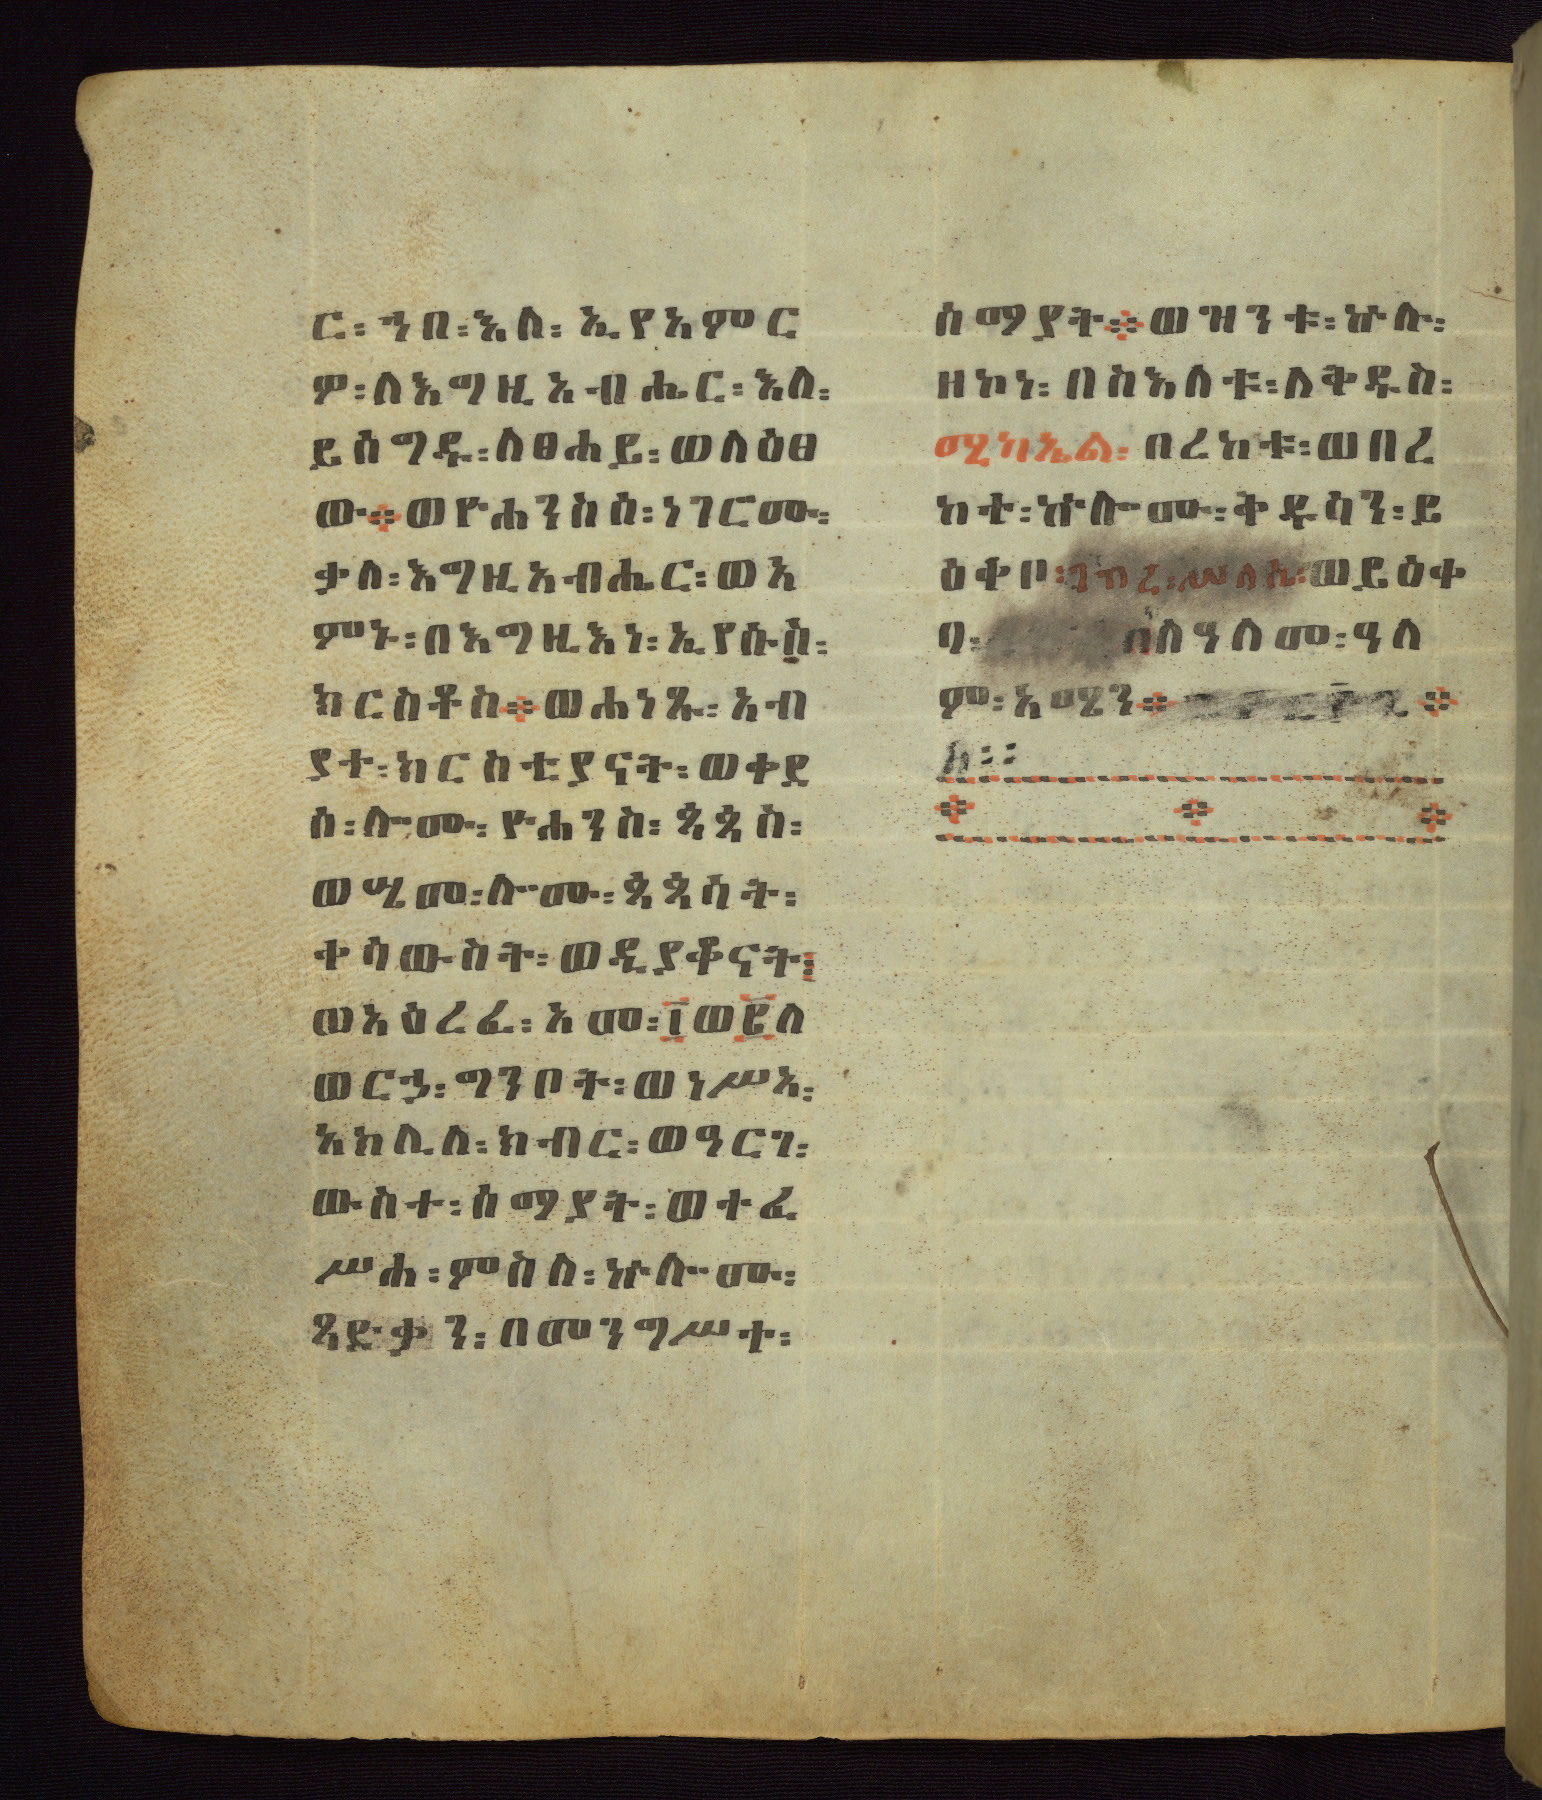 ር፡ ኀበ፡ እለ፡ ኢየአምር
ም፡ ለእግዚአብሔር፡ እለ፡
ይሰግዱ፡ ለፀሐይ፡ ወለዕፀ
ው። ወዮሐንስሰ፡ ነገርሙ፡
ቃለ፡ እግዚአብሔር፡ ወአ
ምኑ፡ በእግዚእነ፡ ኢየሱስ፡
ክርስቶስ። ወሐነጹ፡ አብ
ያተ፡ ክርስቲያናት፡ ወቀደ
ሰ፡ ሎሙ፡ ዮሐንስ፡ ጳጳስ፡
ወሚመ፡ ሎሙ፡ ጳጳሳት፡
ቀሳውስት፡ ወዲያቆናት፡
ወአዕረፈ፡ አመ፡ ፲ወ፪ለ
ወርኃ፡ ግንቦት፡ ወነሥአ፡
አክሊለ፡ ክብር፡ ወዓርገ፡
ውስተ፡ ሰማያት፡ ወተፈ
ሥሐ፡ ምስለ፡ ኵሎሙ፡
ጻድቃን፡ በመንግሥተ፡
ሰማያት። ወዝንቱ፡ ኵሉ፡
ዘኮነ፡ በስእለቱ፡ ለቅዱስ፡
ሚካኤል፡ በረከቱ፡ ወበረ
ከተ፡ ኵሎሙ፡ ቅዱሳን፡ ይ
ዕቀቦ፡ ወይዕቀ
ባ፡ ለዓለመ፡ ዓለ
ም፡ አሜን።